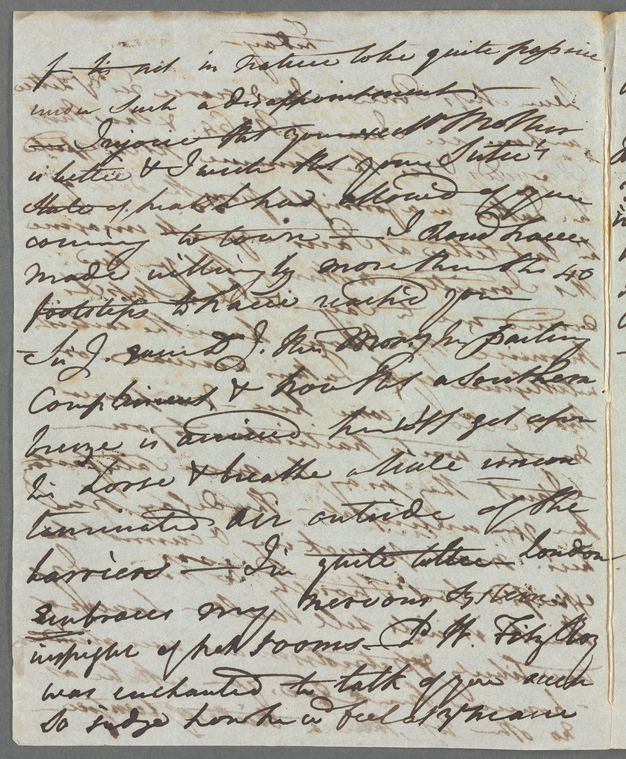 & it is not in nature to be quite passive
under such a disappointment
— I rejoice that your Mother
is better & I wish that your Sister's
state of health had allowed of your
coming to town — I should have
made willingly more than the 40
footsteps to have reached you
— Sir J. paid J. this Morng his parting
Compliment & now that a Southern
breeze is arrived he will get upon
his horse & breathe a little uncon
taminated air outside of the
barriers — I'm quite better London
Embraces my nervous System
inspight of hot rooms — W. FitzRoy
was enchanted to talk of you
So judge how he feel